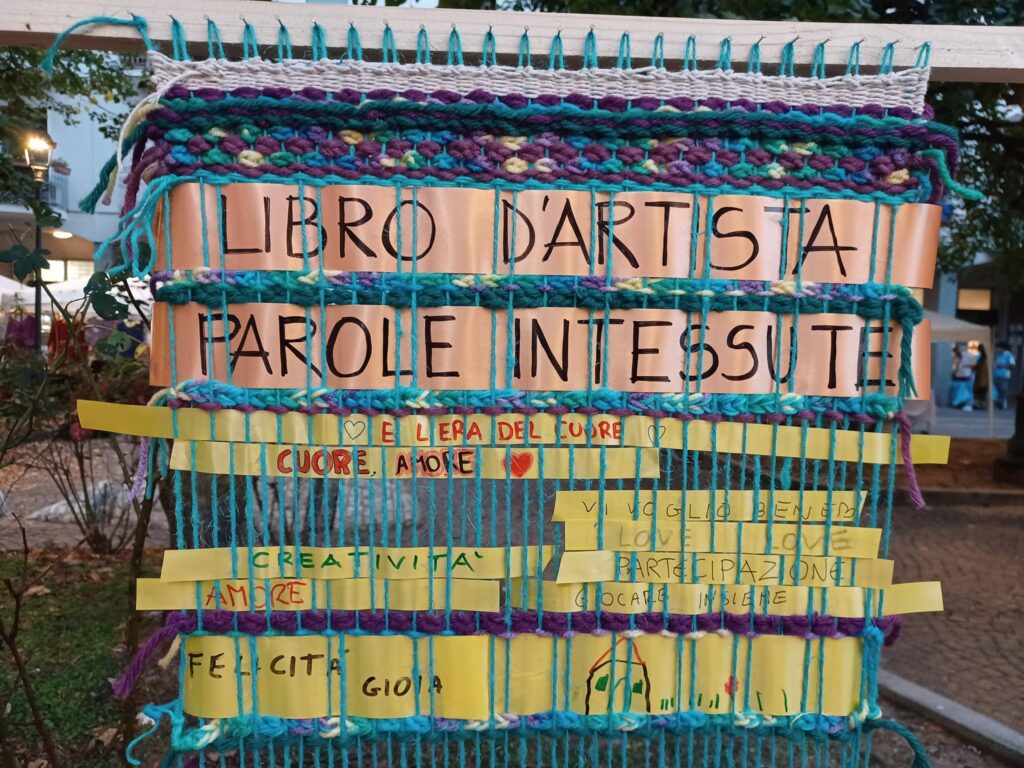 LIBRO D'ARTISTA
PAROLE INTESSUTE
E L'ERA DEL CUORE
CUORE, AMORE
VI VOGLIO BENE
LOVE LOVE
CREATIVITÀ
PARTECIPAZIONE
AMORE
GIOCARE INSIEME
FELICITÀ
GIOIA